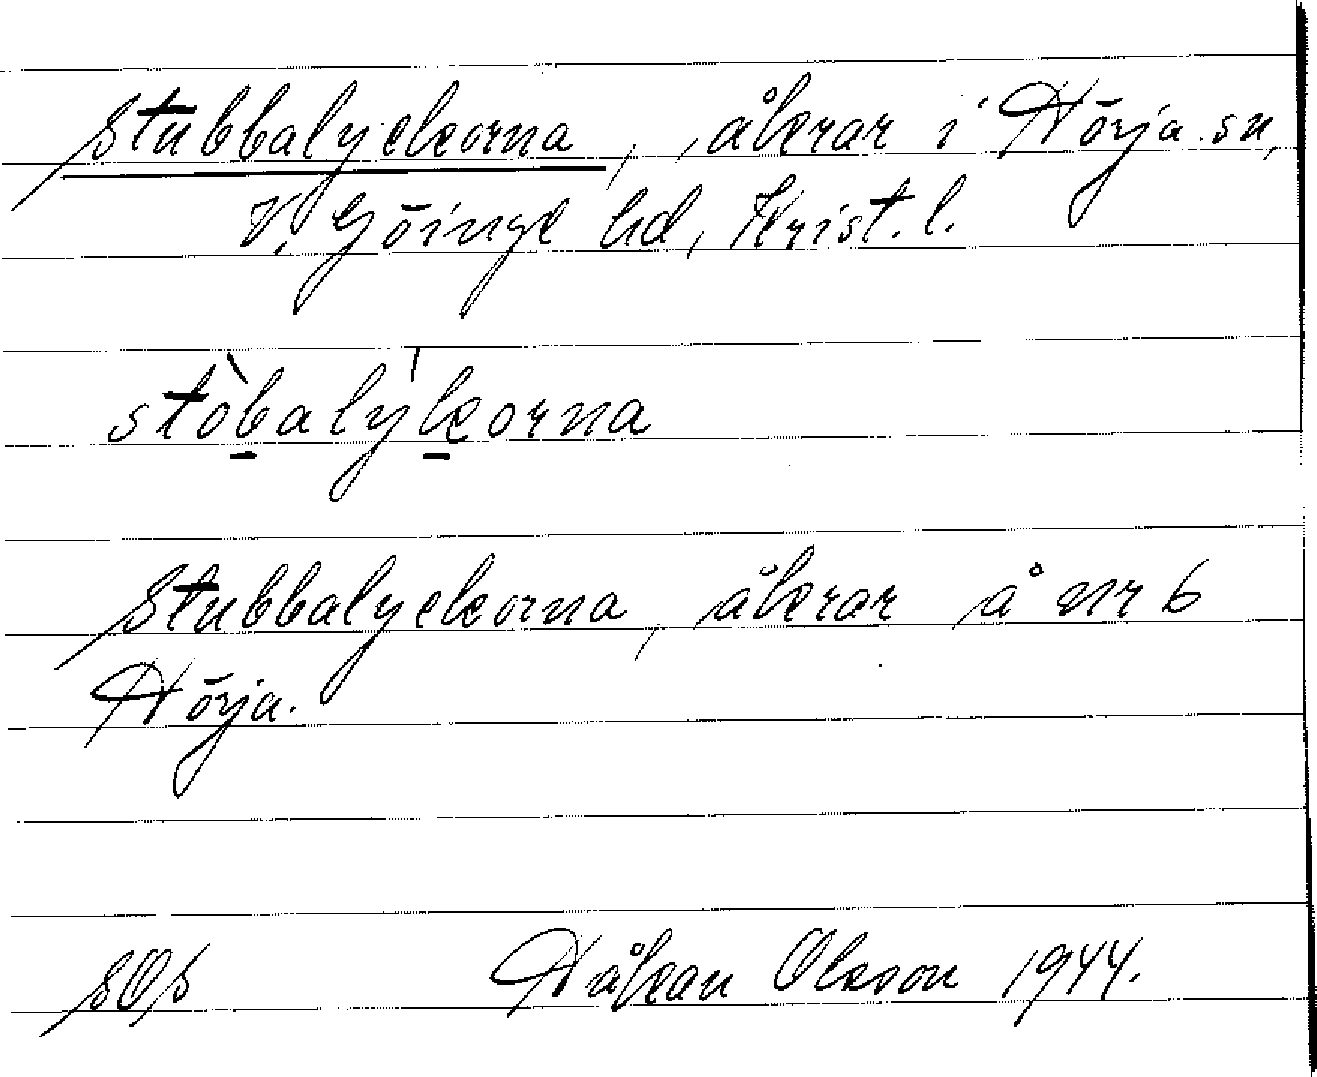 Stubbalyckorna, åkrar i Hörja sn,
V. Göinge hd, Krist. l.
stòbalýkorna
Stubbalyckorna, åkrar å nr 6
Hörja.
SOS Håkan Olsson 1944.